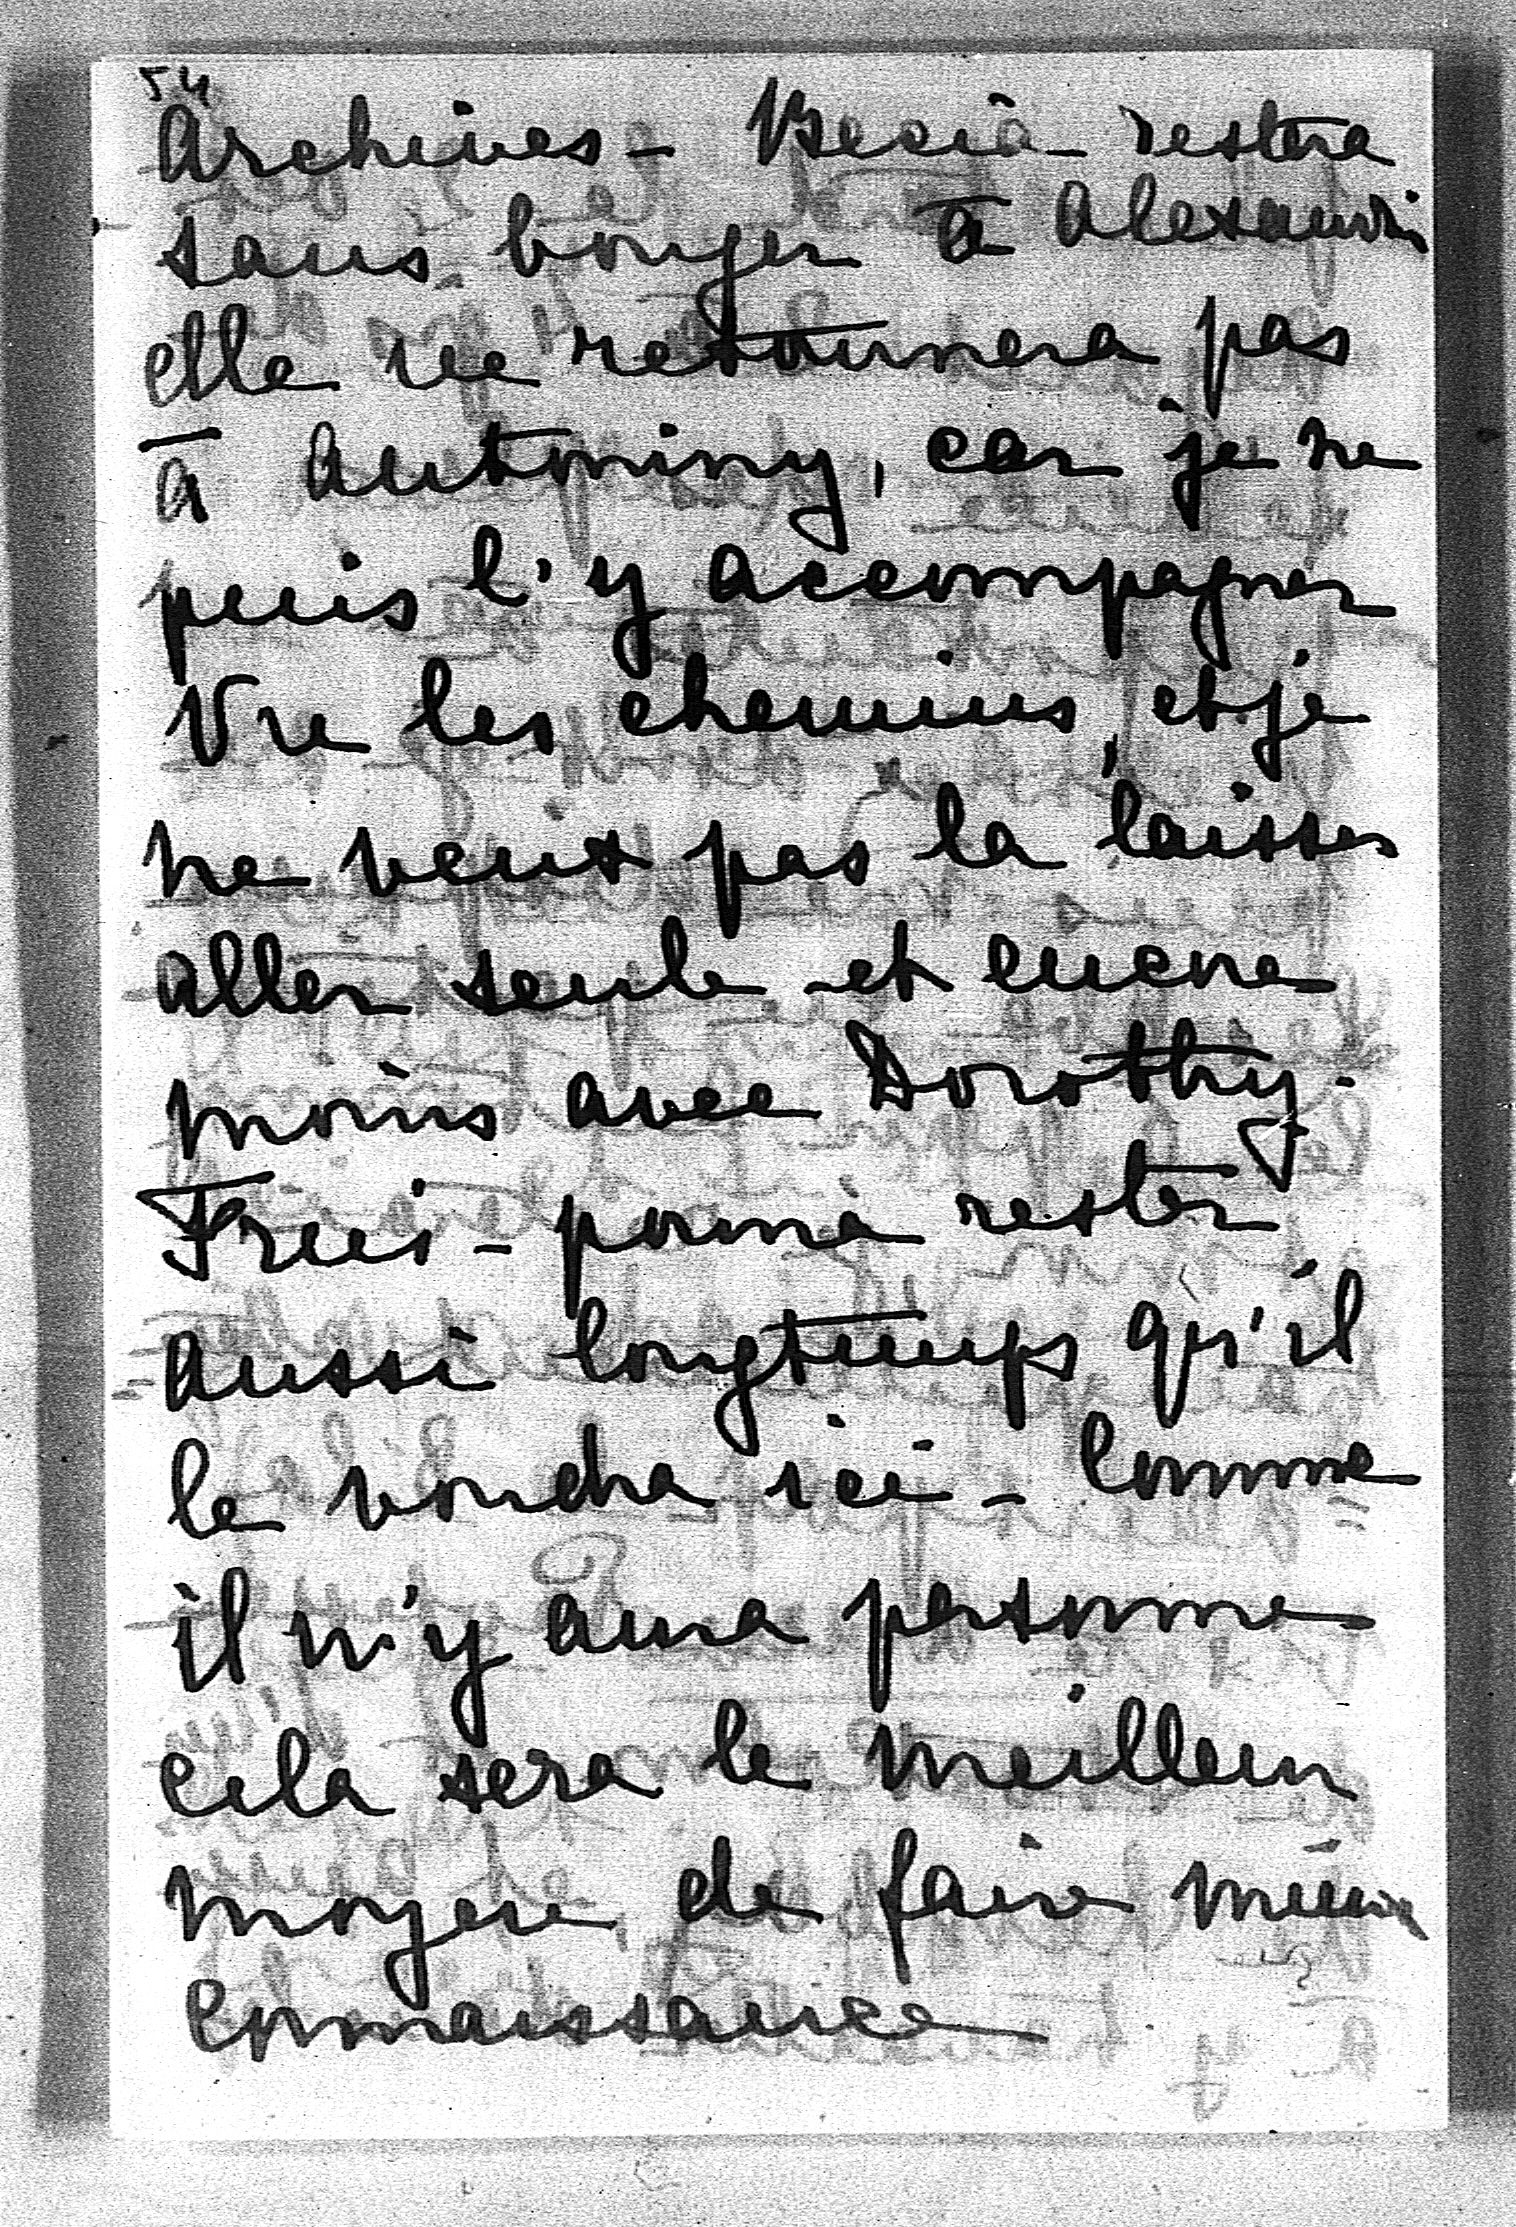 54
Archives - Becia - restera
sans bouger à Alexandri
elle ne retournera pas
à Antoniny, car je ne
puis l'y accompagner
Vu les chemins, et je
ne veux pas la laisser
aller seule et encore
moins avec Dorothy.
Frici - pourra rester
aussi longtemps qu'il
le voudra ici - Comme
il n'y aura personne
cela sera le meilleur
moyen de faire mieux
connaissance